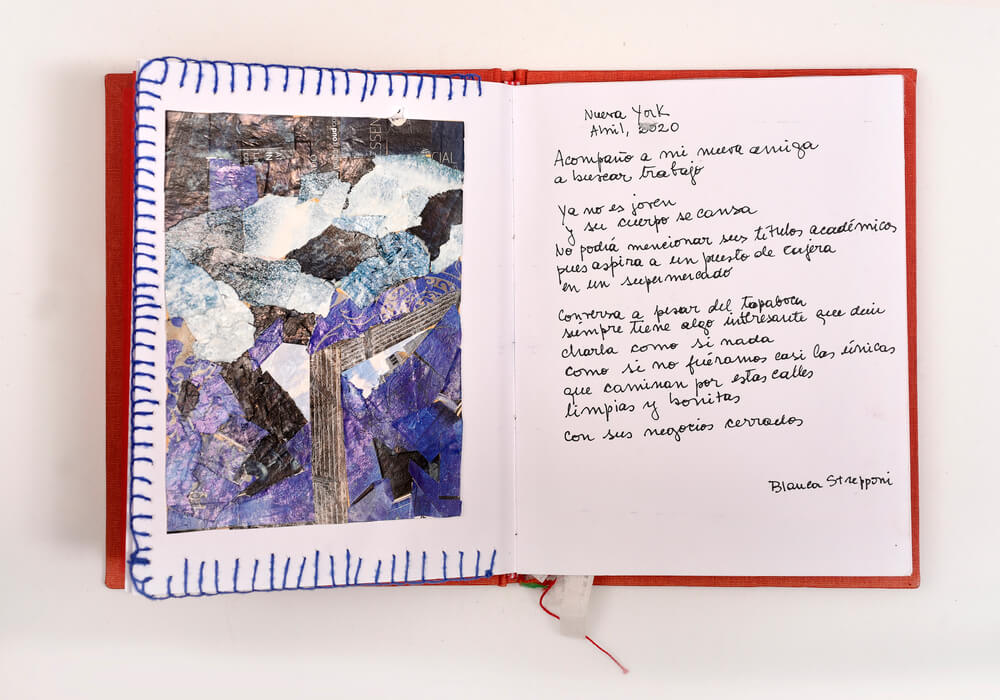 ESSEN
CIAL
oud
Nueva York
Abril, 2020
Acompaño a mi nueva amiga
a buscar trabajo
Ya no es joven
y su cuerpo se cansa
No podrá mencionar sus títulos académicos
pues aspira a un puesto de cajera
en un supermercado
Conversa a pesar del tapaboca
siempre tiene algo interesante que decir
charla como si nada
como si no fuéramos casi las únicas
que caminan por estas calles
limpias y bonitas
con sus negocios cerrados
Blanca Strepponi